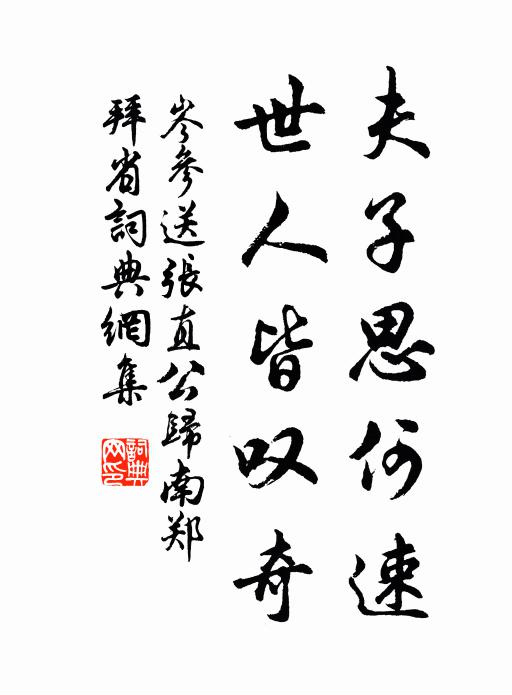 夫子思何速
世人皆叹奇
岑參送張直公歸南郑
拜省詞典網集
詞典网印